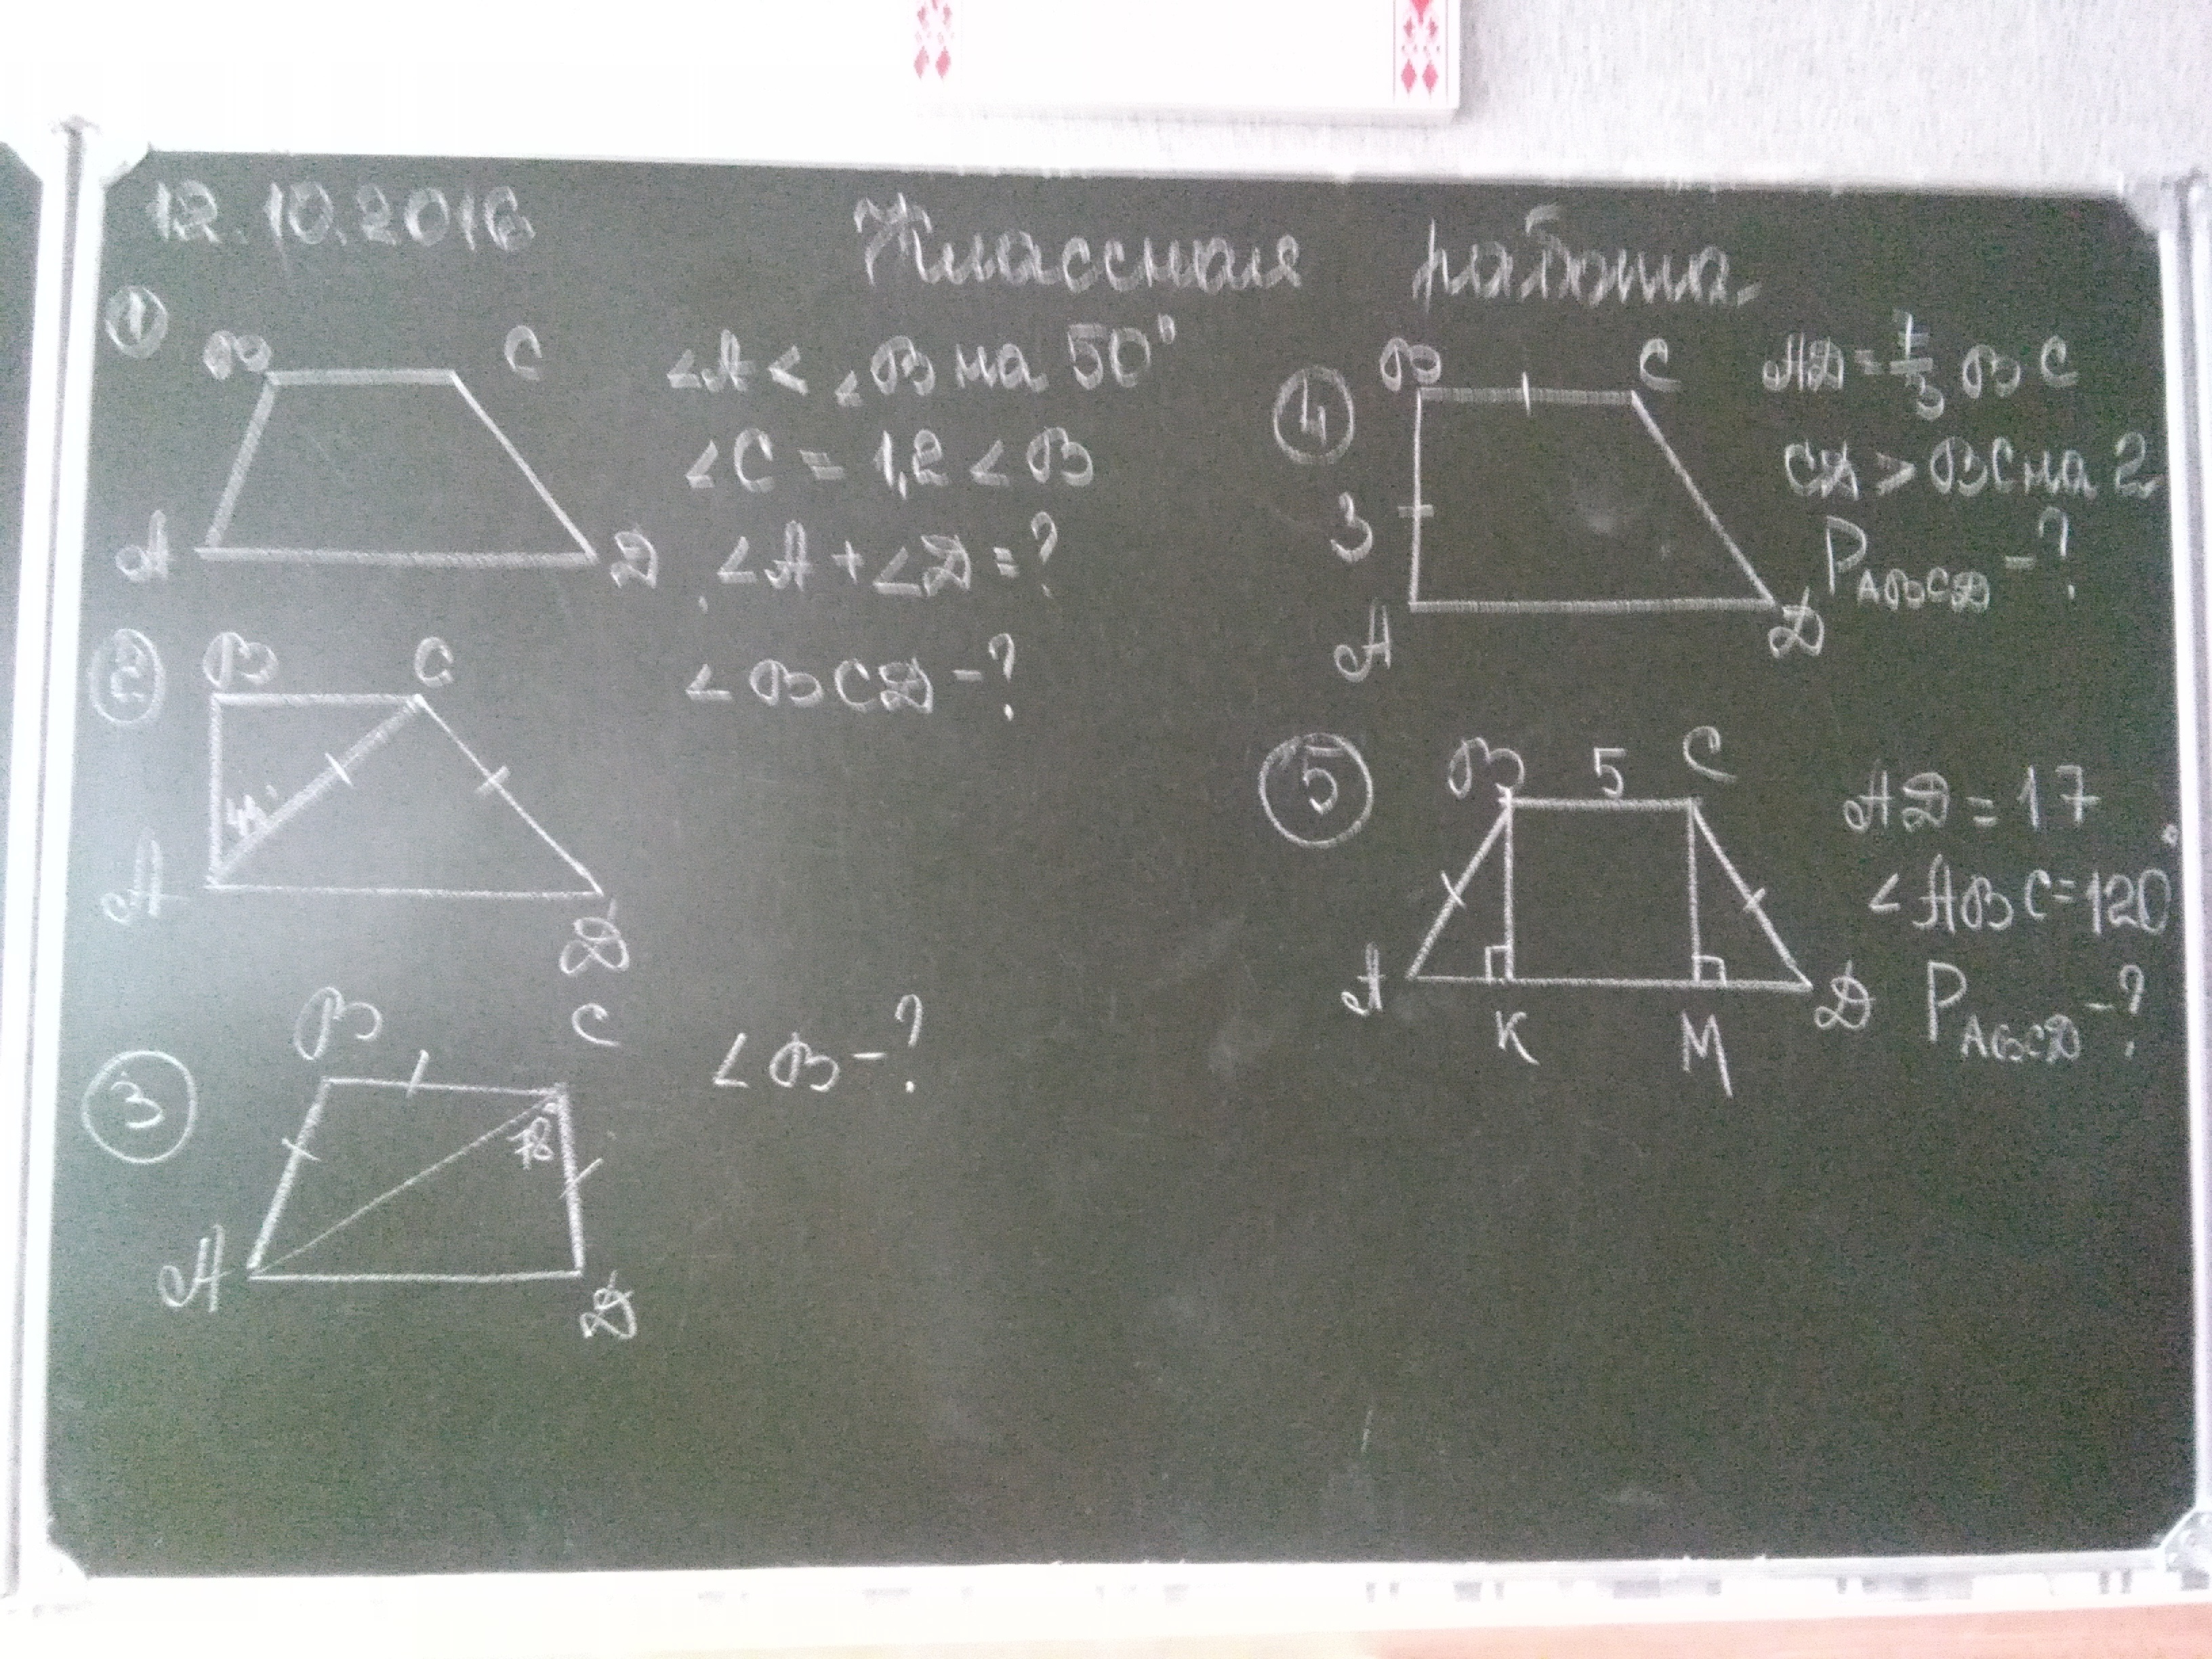 12.10.2016 Классная работа.
1
B C
A D
∠A < ∠B на 50°
∠C = 1,2 ∠B
∠A + ∠D = ?
2
B C
A D
∠BCD - ?
3
B C
78
A D
∠B - ?
4
B C
3
A D
AD = 1/3 BC
CD > BC на 2
P ABCD - ?
5
B 5 C
A K M D
AD = 17
∠ABC = 120°
P ABCD - ?